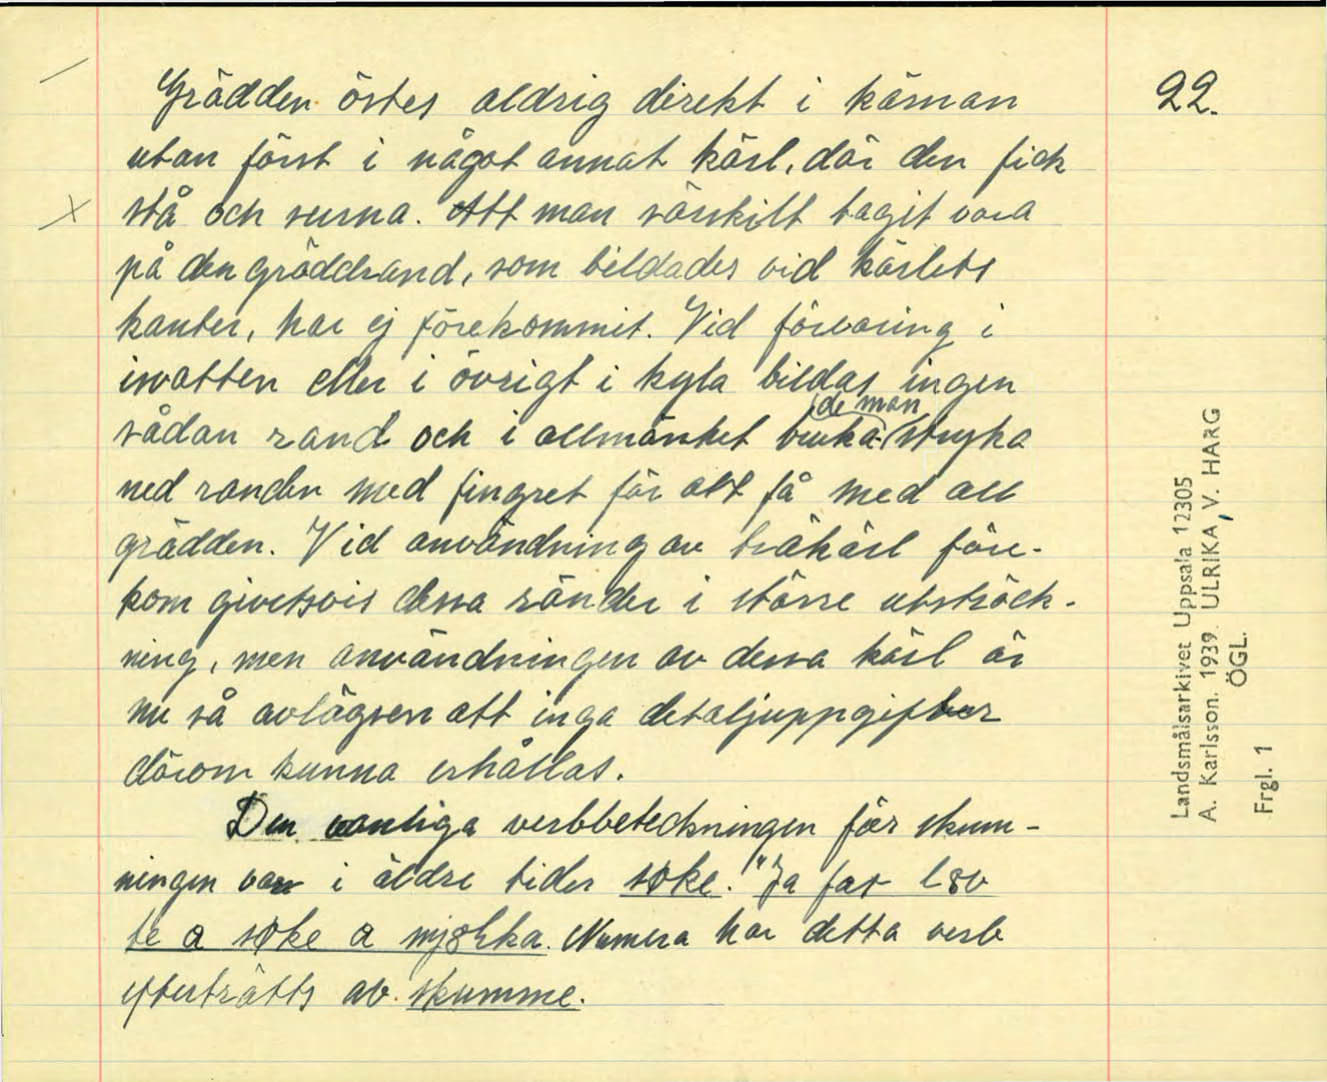 Grädden östes aldrig direkt i kärnan
utan först i något annat kärl, där den fick
stå och surna. Att man särskilt tagit vara
på den gräddrand, som bildades vid kärlets
kanter, har ej förekommit. Vid förvaring i
isvatten eller i övrigt i kyla bildas ingen
sådan rand och i allmänhet bruka-de man stryka
ned randen med fingret för att få med all
grädden. Vid användning av träkärl före-
kom givetsvis dessa ränder i större utsträck-
ning, men användningen av dessa kärl är
nu så avlägsen att inga detaljuppgifter
därom kunna erhållas.
Den vanliga verbbeteckningen för skum-
ningen var i äldre tider søke. "Ja far
te a søke a Numera har detta verb
efterträtts av skumme.
22.
Landsmålsarkivet Uppsala 12305
A. Karlsson. 1939. ULRIKA, V. HARG
ÖGL.
Frgl. 1